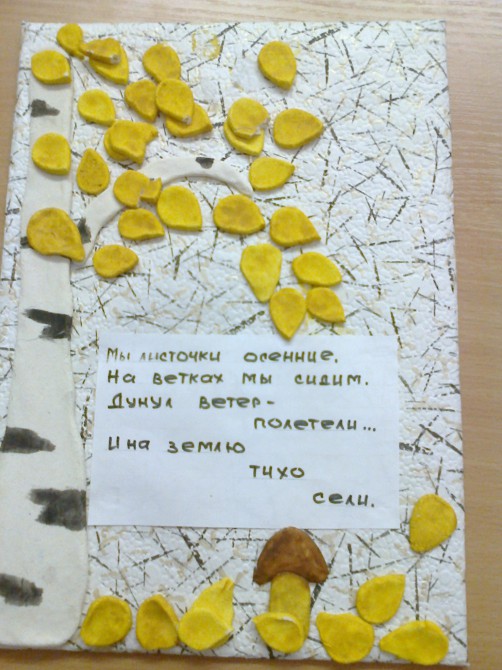 Мы листочки осенние,
На ветках мы сидим.
Дунул ветер-
полетели...
И на землю
тихо
сели.